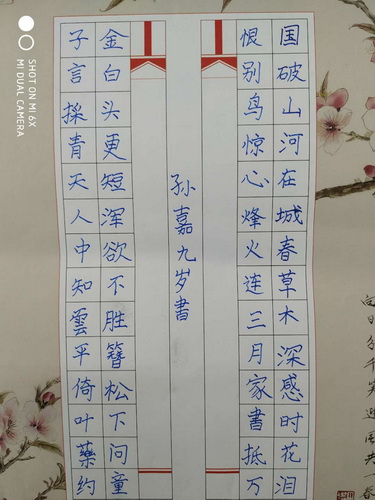 国破山河在城春草木深感时花泪
恨别鸟惊心烽火连三月家书抵万
孙嘉九岁书
金白头更短浑欲不胜簪松下问童
子言採青天人中知雲平倚叶藥约
向日分千笑迎风共
SHOT ON MI 6X
MI DUAL CAMERA